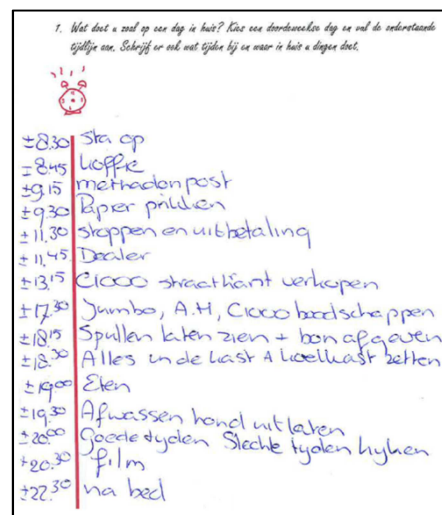 1. Wat doet u zoal op een dag in huis? Kies een doordeweekse dag en vul de onderstaande
tijdlijn aan. Schrijf er ook wat tijden bij en waar in huis u dingen doet.
±8.30 sta op
±8.45 koffie
±9.15 methadonpost
±9.30 Papier prikken
±11.30 stoppen en uitbetaling
±11.45 Dealer
±13.15 C1000 straatkrant verkopen
±17.30 Jumbo, A.H, C1000 boodschappen
±18.15 Spullen laten zien + bon afgeven
±18.30 Alles in de kast + koelkast zetten
±19.00 Eten
±19.30 Afwassen hond uitlaten
±20.00 Goede tyden Slechte tyden kyken
±20.30 film
±22.30 na bed